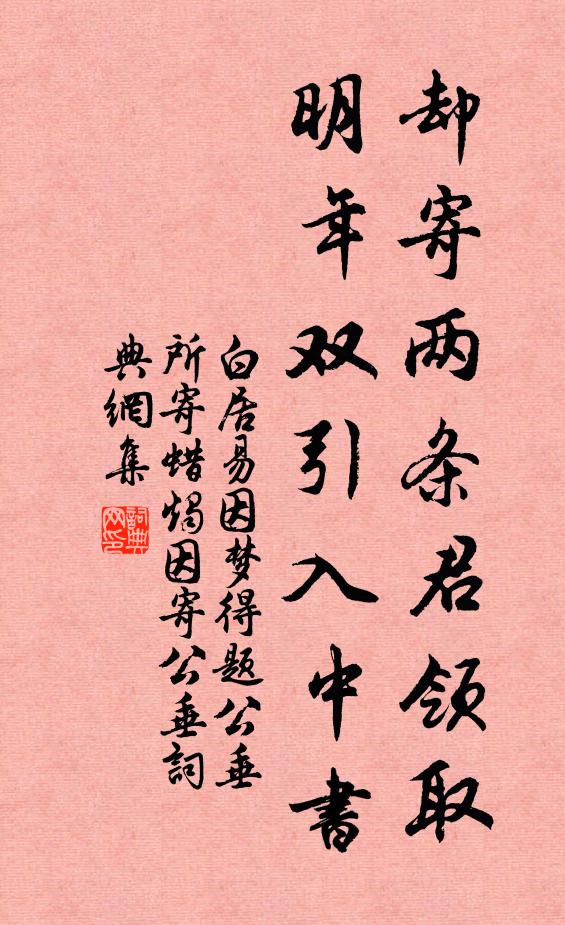 却寄两条君领取
明年双引入中書
白居易因梦得题公垂
所寄蜡烛因寄公垂詞
典網集
詞典
网印